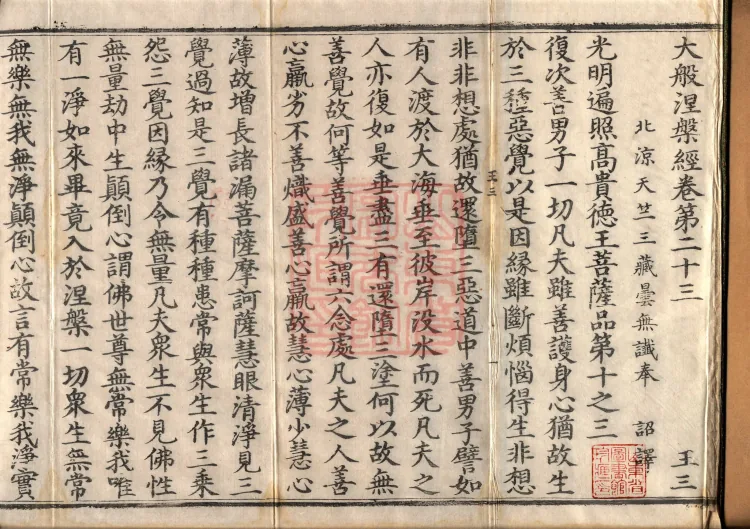 大般涅槃經卷第二十三 王三
北涼天竺三藏曇無讖奉 詔譯
光明遍照高貴德王菩薩品第十之三
復次善男子一切凡夫雖善護身心猶故生
於三種惡覺以是因縁雖斷煩惱得生非想
王三 一
非非想處猶故還墮三惡道中善男子譬如
有人渡於大海垂至彼岸没水而死凡夫之
人亦復如是垂盡三有還墮三塗何以故無
善覺故何等善覺所謂六念處凡夫之人善
心羸劣不善熾盛善心羸故慧心薄少慧心
薄故増長諸漏菩薩摩訶薩慧眼清淨見三
覺過知是三覺有種種患常與衆生作三乘
怨三覺因縁乃令無量凡夫衆生不見佛性
無量劫中生顛倒心謂佛世尊無常樂我唯
有一淨如來畢竟入於涅槃一切衆生無常
無樂無我無淨顛倒心故言有常樂我淨實